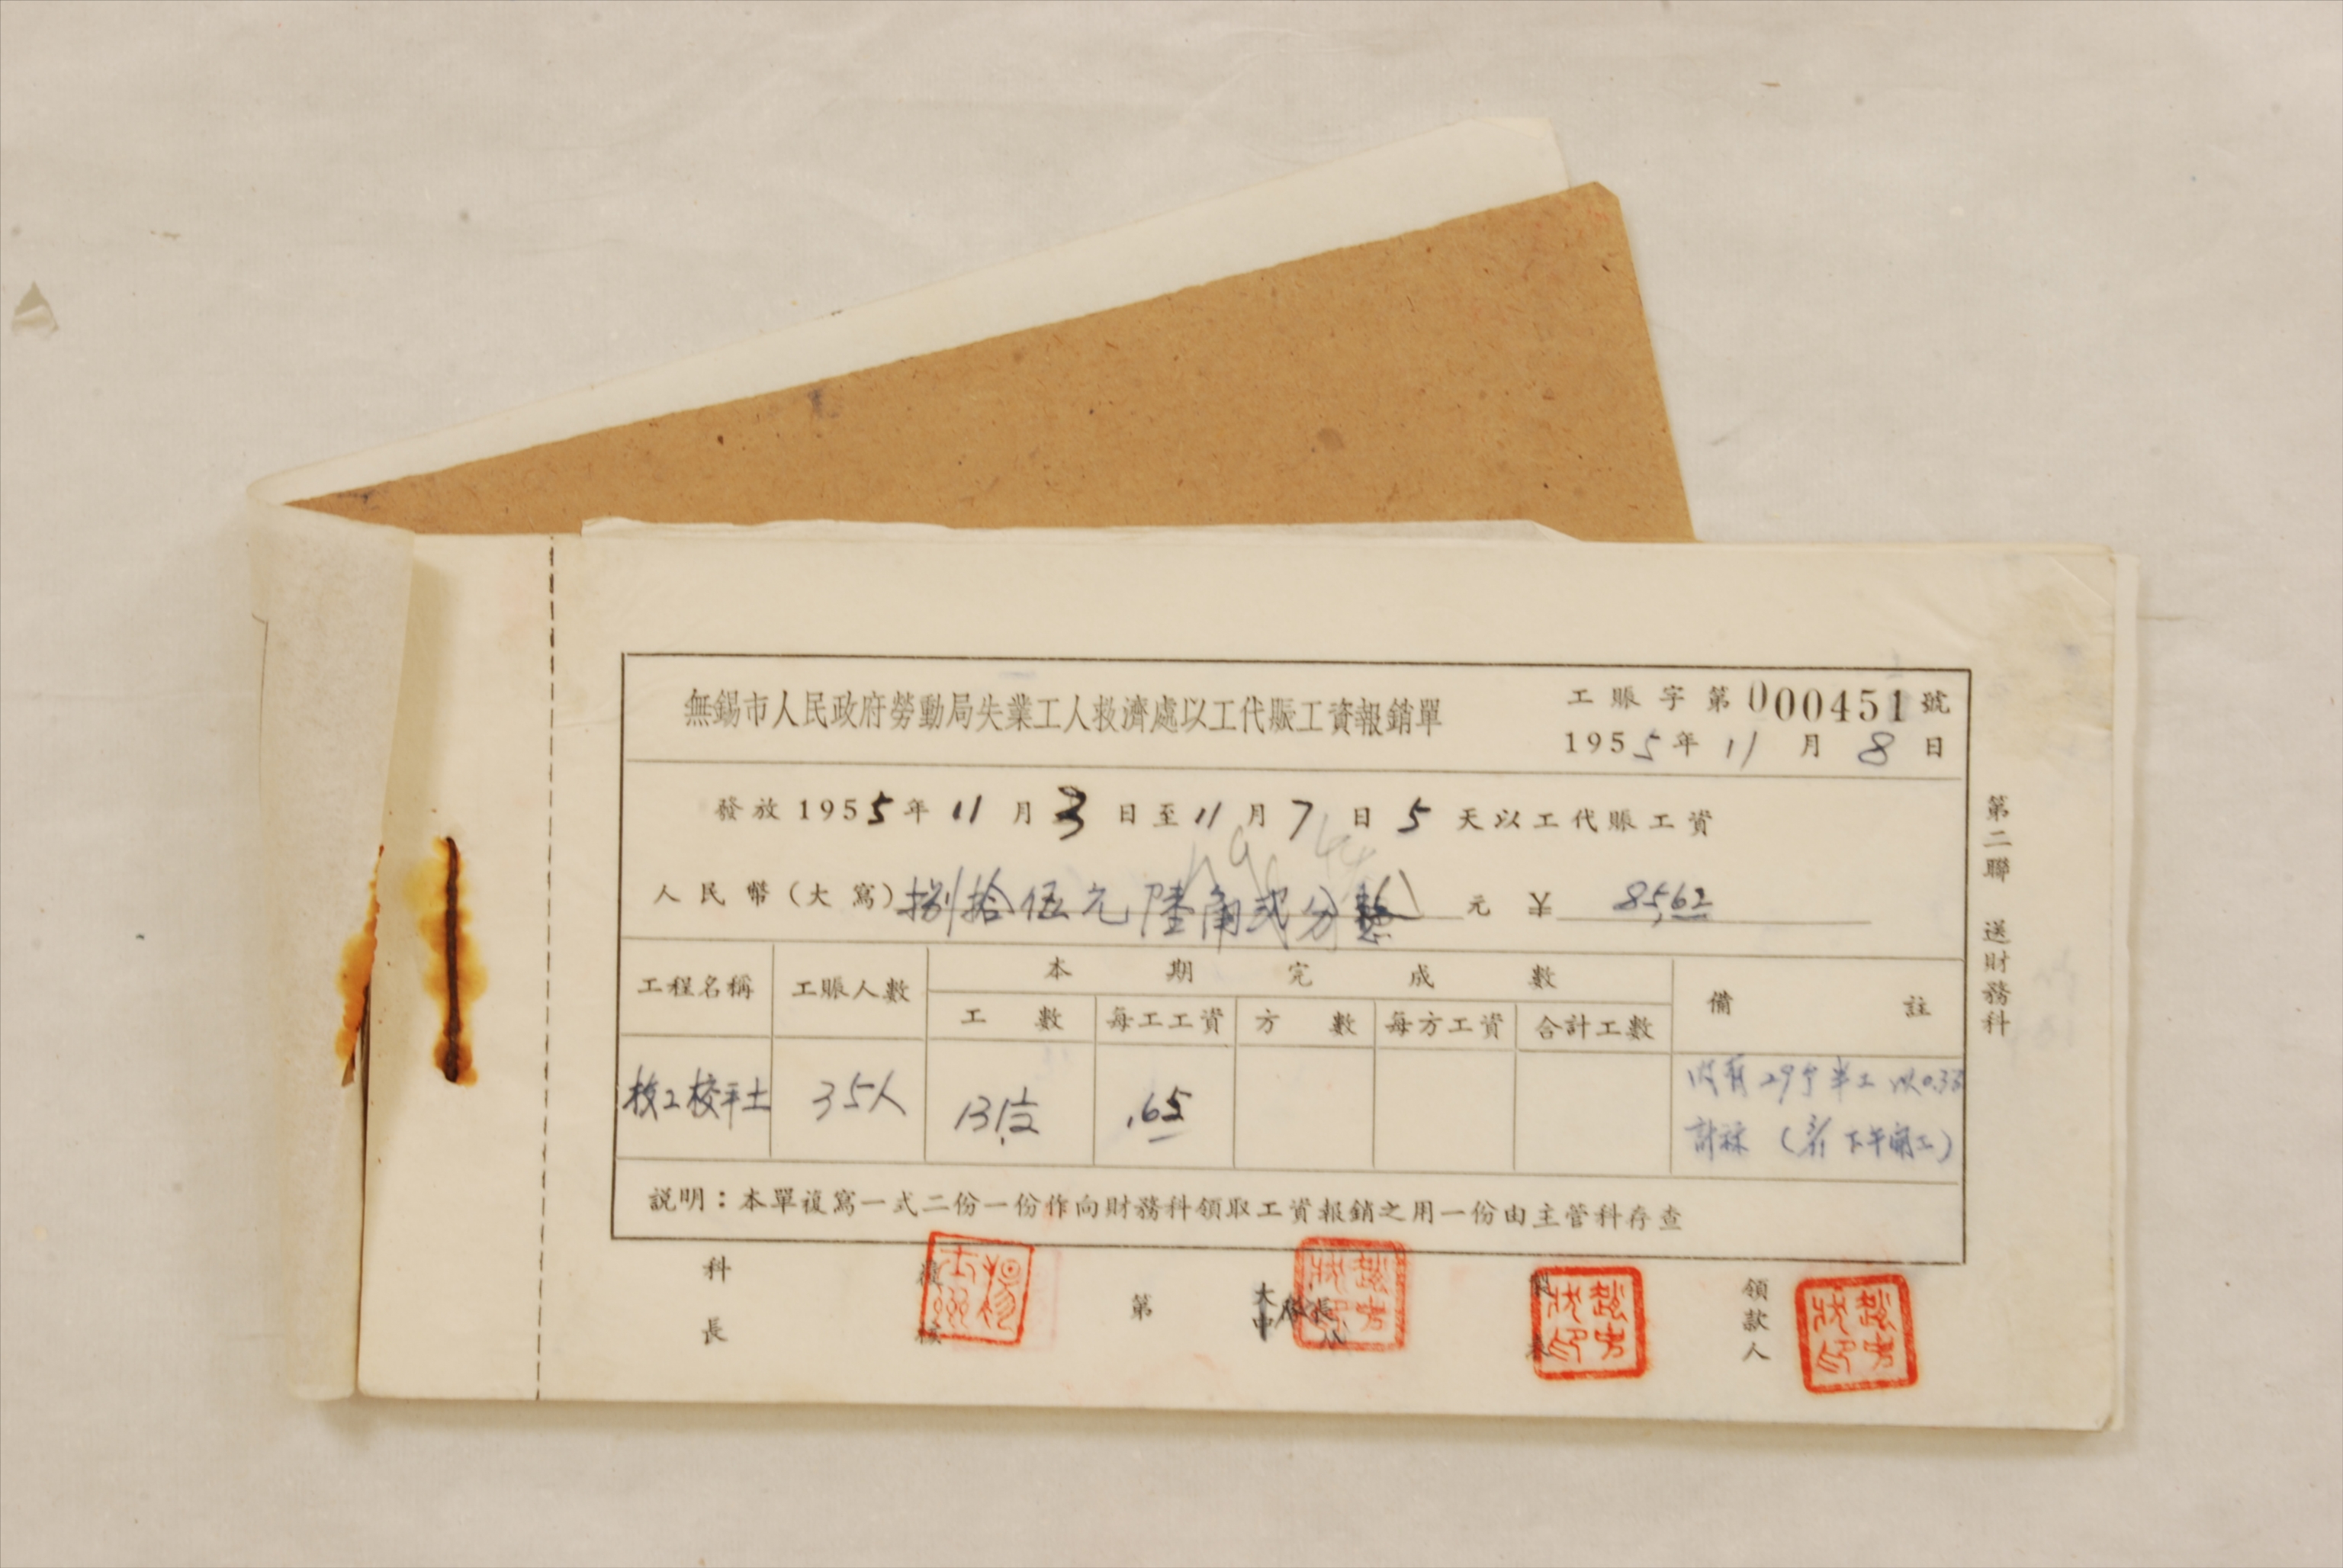 無錫市人民政府勞動局失業工人救濟處以工代賑工資報銷單
工賑字第000451號
1955年11月8日
發放1955年11月3日至11月7日5天以工代賑工資
人民幣(大寫)捌拾伍元陸角貳分整元 ¥ 85.62
工程名稱 工賑人數 本期完成數 備註
工數 每工工資 方數 每方工資 合計工數
技工校平土 35人 131½ .65
內有29个半工以0.33
計祘 ( 下午開工)
説明：本單複寫一式二份一份作向財務科領取工資報銷之用一份由主管科存查
科長 複核 第 大中 隊長 製表 領款人
第二聯 送財務科